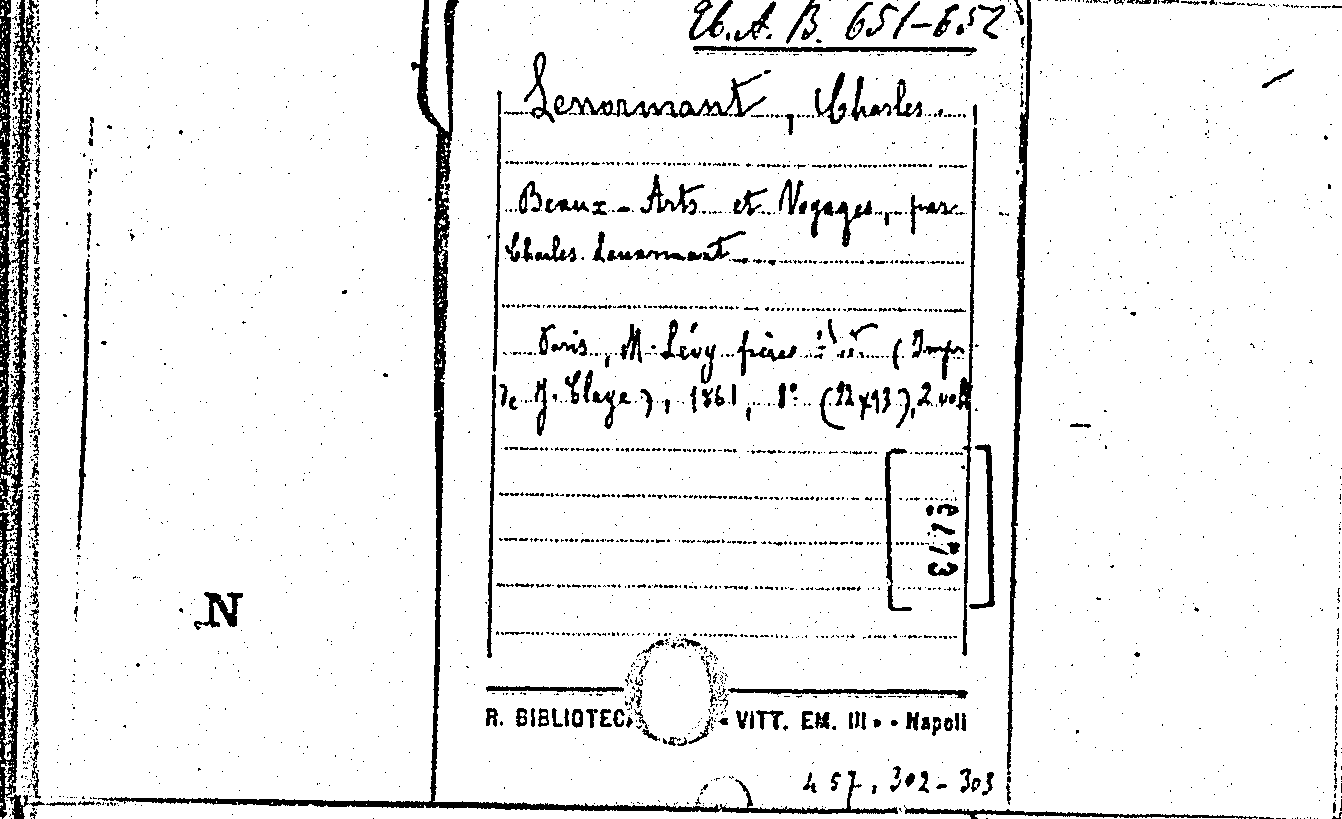 A. B. 651-652
Lenormant, Charles.
Beaux-Arts et Voyages, par
Charles Lenormant....
Paris, M. Lévy frères (Impr
de J. Claye), 1861, 8° 2 vol.
N
R. BIBLIOTEC « VITT. EM. III » - Napoli
457.302-303